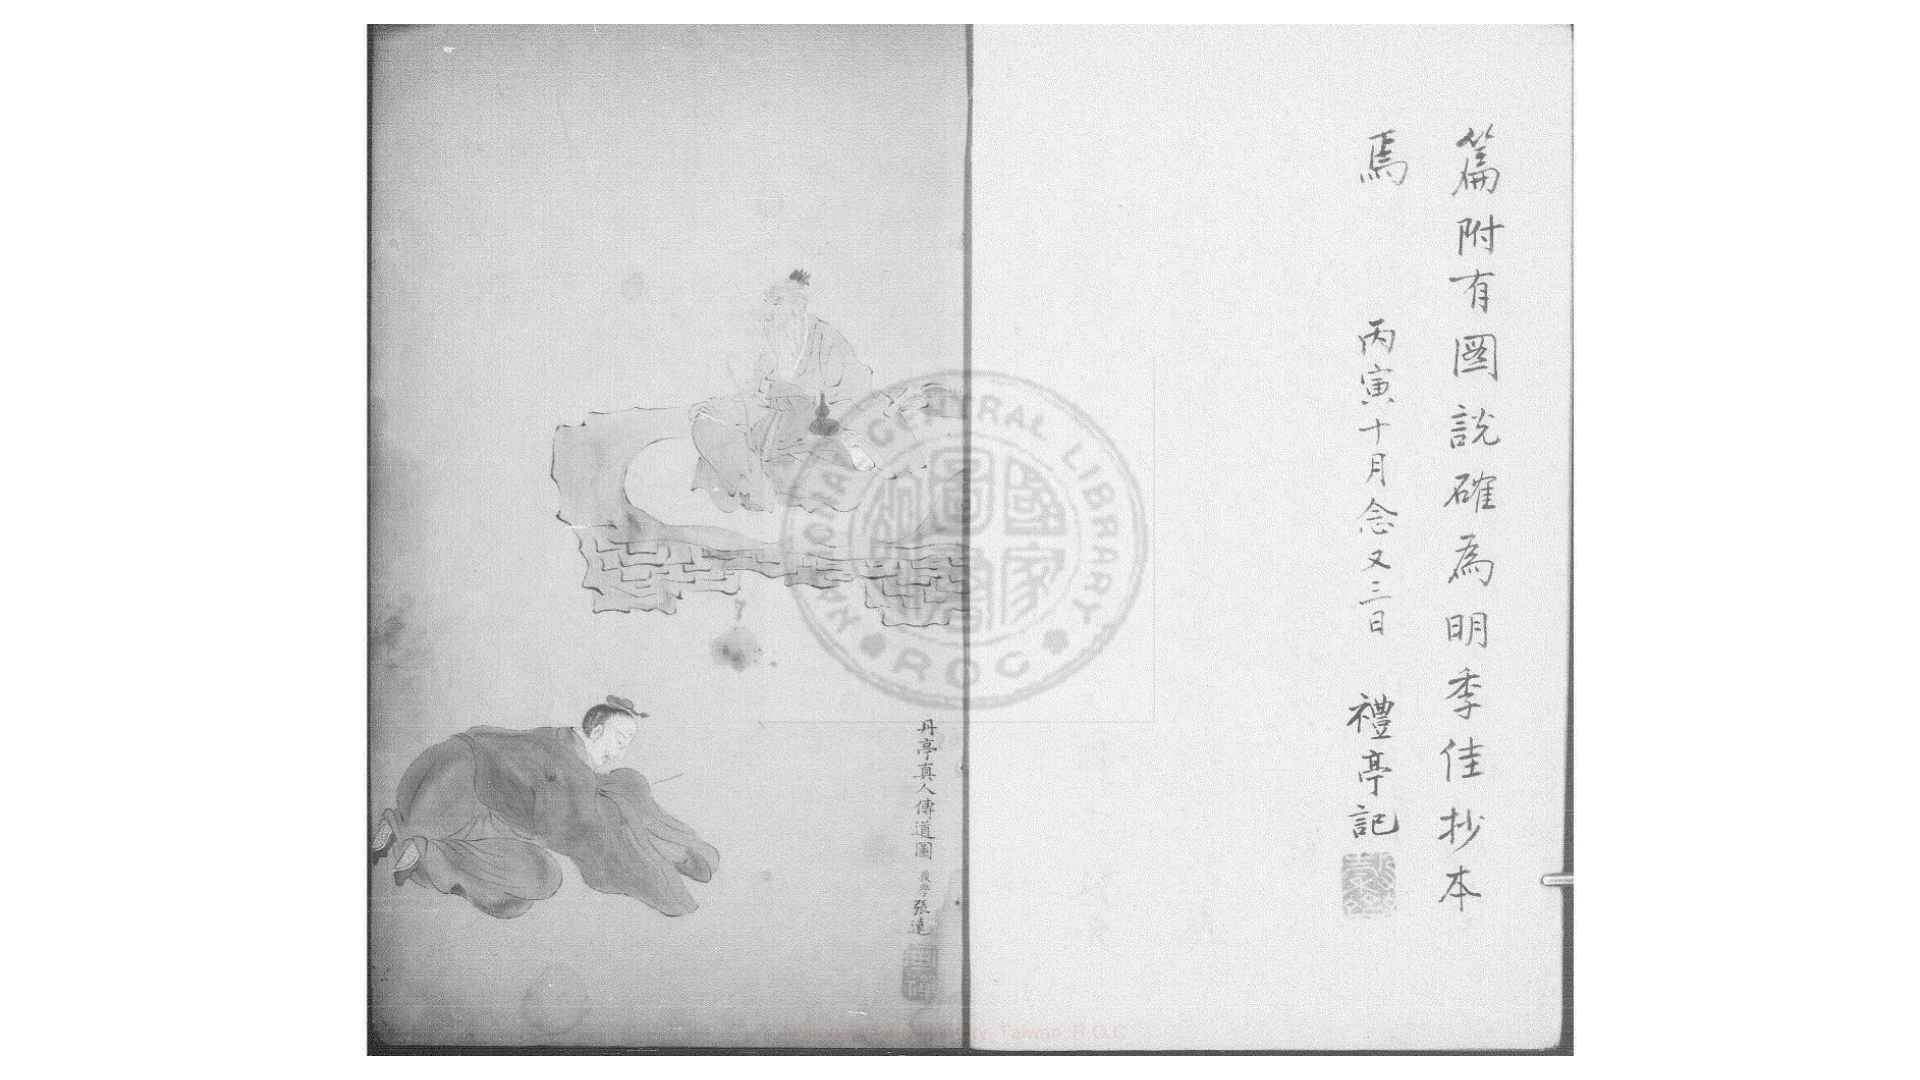 篇附有圖説確為明季佳抄本
焉
丙寅十月念又三日 禮亭記
丹亭真人傳道圖
後學張遠
NATIONAL CENTRAL LIBRARY
ROC
國家圖書
Taiwan, R.O.C